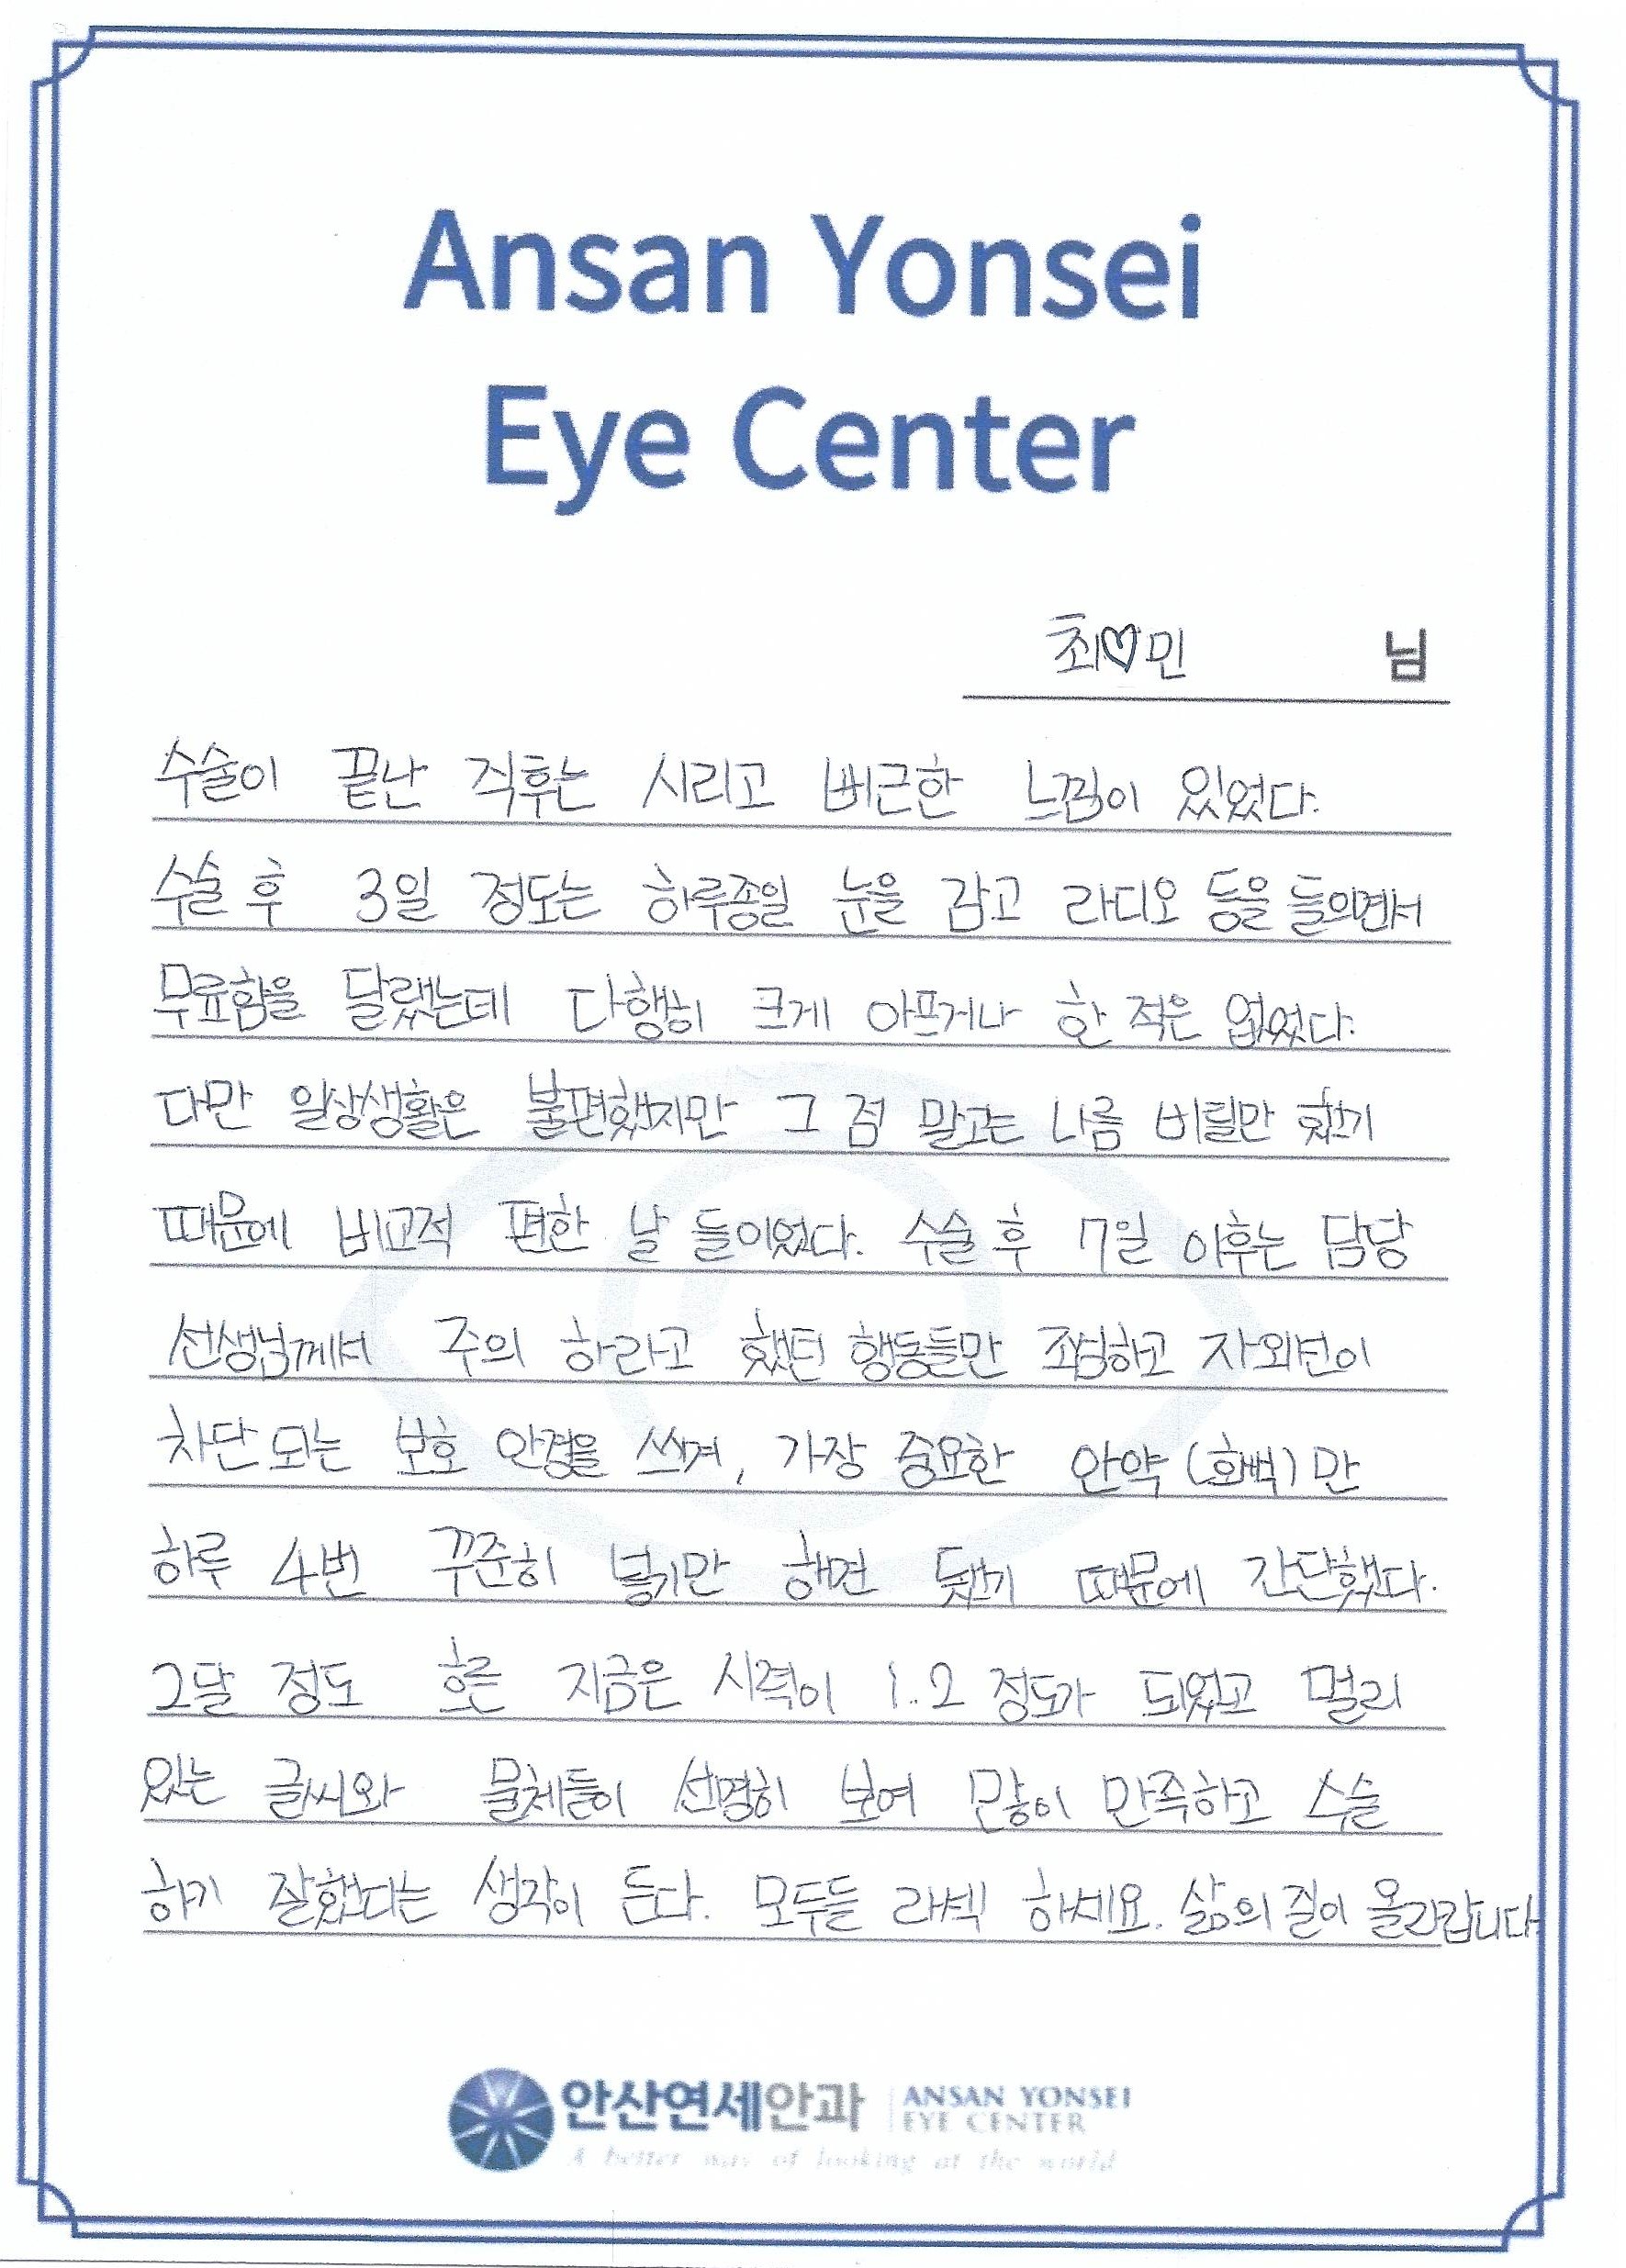 Ansan Yonsei
Eye Center
최♡민 님
수술이 끝난 직후는 시리고 뻐근한 느낌이 있었다.
수술 후 3일 정도는 하루종일 눈을 감고 라디오 등을 들으면서
무료함을 달랬는데 다행히 크게 아프거나 한 적은 없었다.
다만 일상생활은 불편했지만 그 점 말고는 나름 버틸만 했기
때문에 비교적 편한 날 들이었다. 수술 후 7일 이후는 담당
선생님께서 주의 하라고 했던 행동들만 조심하고 자외선이
차단 되는 보호 안경을 쓰며, 가장 중요한 안약 (회백) 만
하루 4번 꾸준히 넣기만 하면 됐기 때문에 간단했다.
2달 정도 흐른 지금은 시력이 1.2 정도가 되었고 멀리
있는 글씨와 물체들이 선명히 보여 많이 만족하고 수술
하기 잘했다는 생각이 든다. 모두들 라섹 하세요. 삶의 질이 올라갑니다
안산연세안과 ANSAN YONSEI
EYE CENTER
A better way of looking at the world